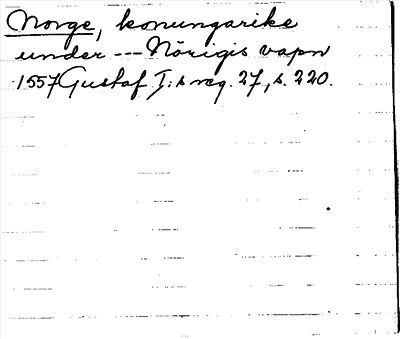 Norge, konungarike
under --- Nörigis vapn
1557 Gustaf I:s reg. 27, s. 220.